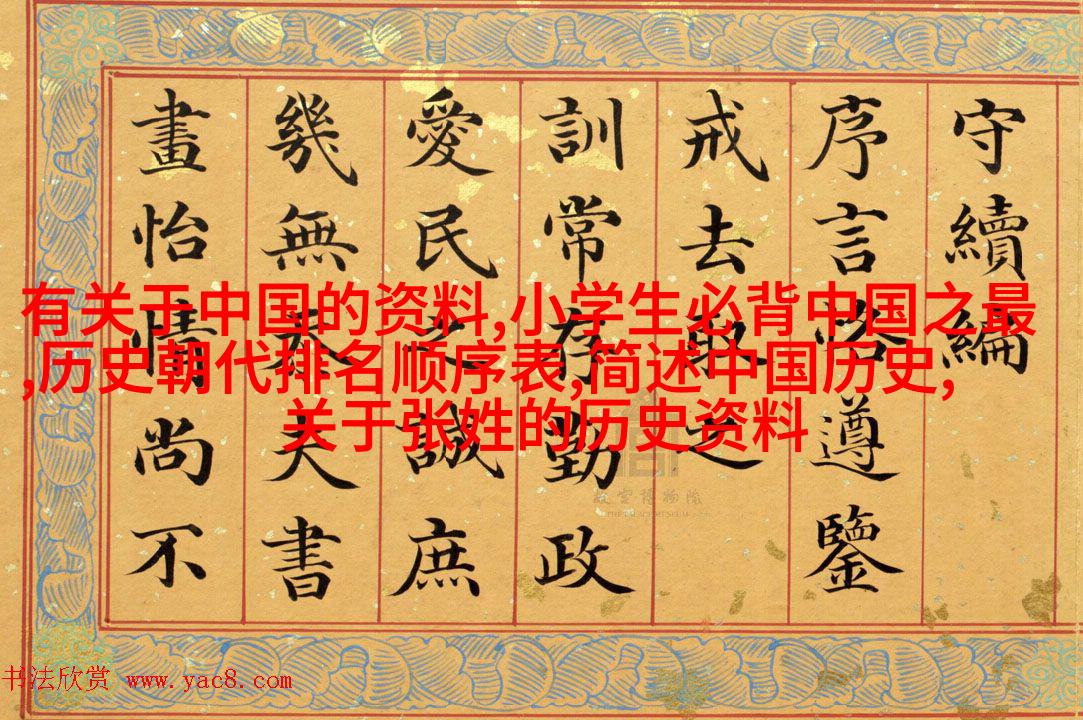 守續編
序言恪遵鑒
戒去取之
訓常存勤政
愛民之誠庶
幾無忝夫書
畫怡情尚不
有关于中国的资料,小学生必背中国之最
,历史朝代排名顺序表,简述中国历史,
关于张姓的历史资料
故宮博物院
THE PALACE MUSEUM
书法欣赏 www.yac8.com